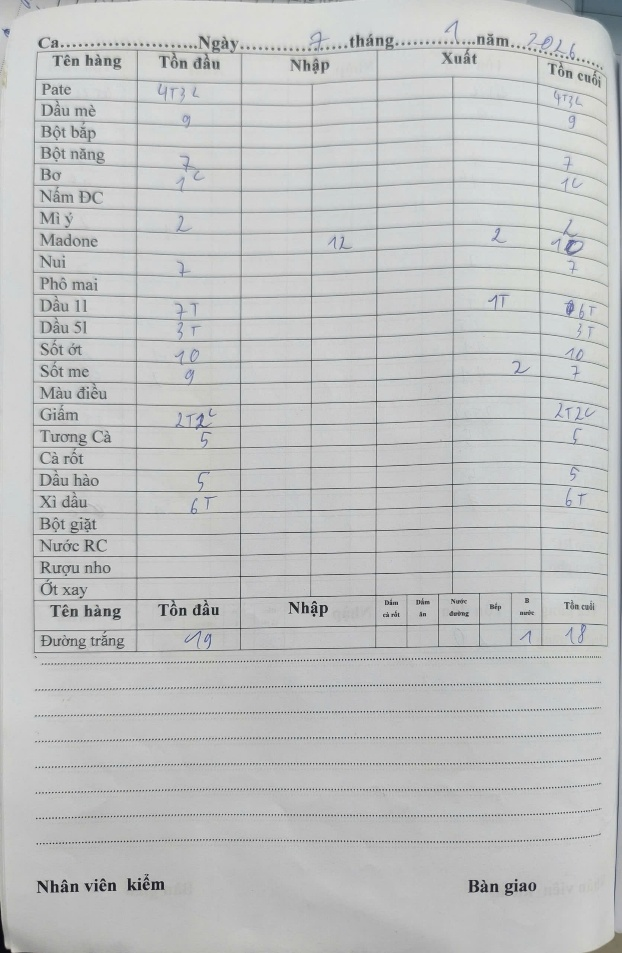 Ca........................Ngày..............7.....tháng............1...năm...2026......
Tên hàng Tồn đầu Nhập Xuất Tồn cuối
Pate 4T3L 4T3L
Dầu mè 9 9
Bột bắp
Bột năng 7 7
Bơ 1C 1C
Nấm ĐC
Mì ý 2 2
Madone 12 2 10
Nui 7 7
Phô mai
Dầu 1l 7T 1T 6T
Dầu 5l 3T 3T
Sốt ớt 10 10
Sốt me 9 2 7
Màu điều
Giấm 2T2C 2T2C
Tương Cà 5 5
Cà rốt
Dầu hào 5 5
Xì dầu 6T 6T
Bột giặt
Nước RC
Rượu nho
Ớt xay
Tên hàng Tồn đầu Nhập Dấm cà rốt Dấm ăn Nước đường Bếp B nước Tồn cuối
Đường trắng 19 1 18
Nhân viên kiểm Bàn giao